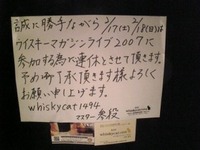 誠に勝手ながら3/17(土)2/18(日)は
ウイスキーマガジンライブ2007に
参加する為に連休とさせて頂きます。
予めご了承頂きます様よろしく
お願い申し上げます。
whiskycat1494
マスター 参役